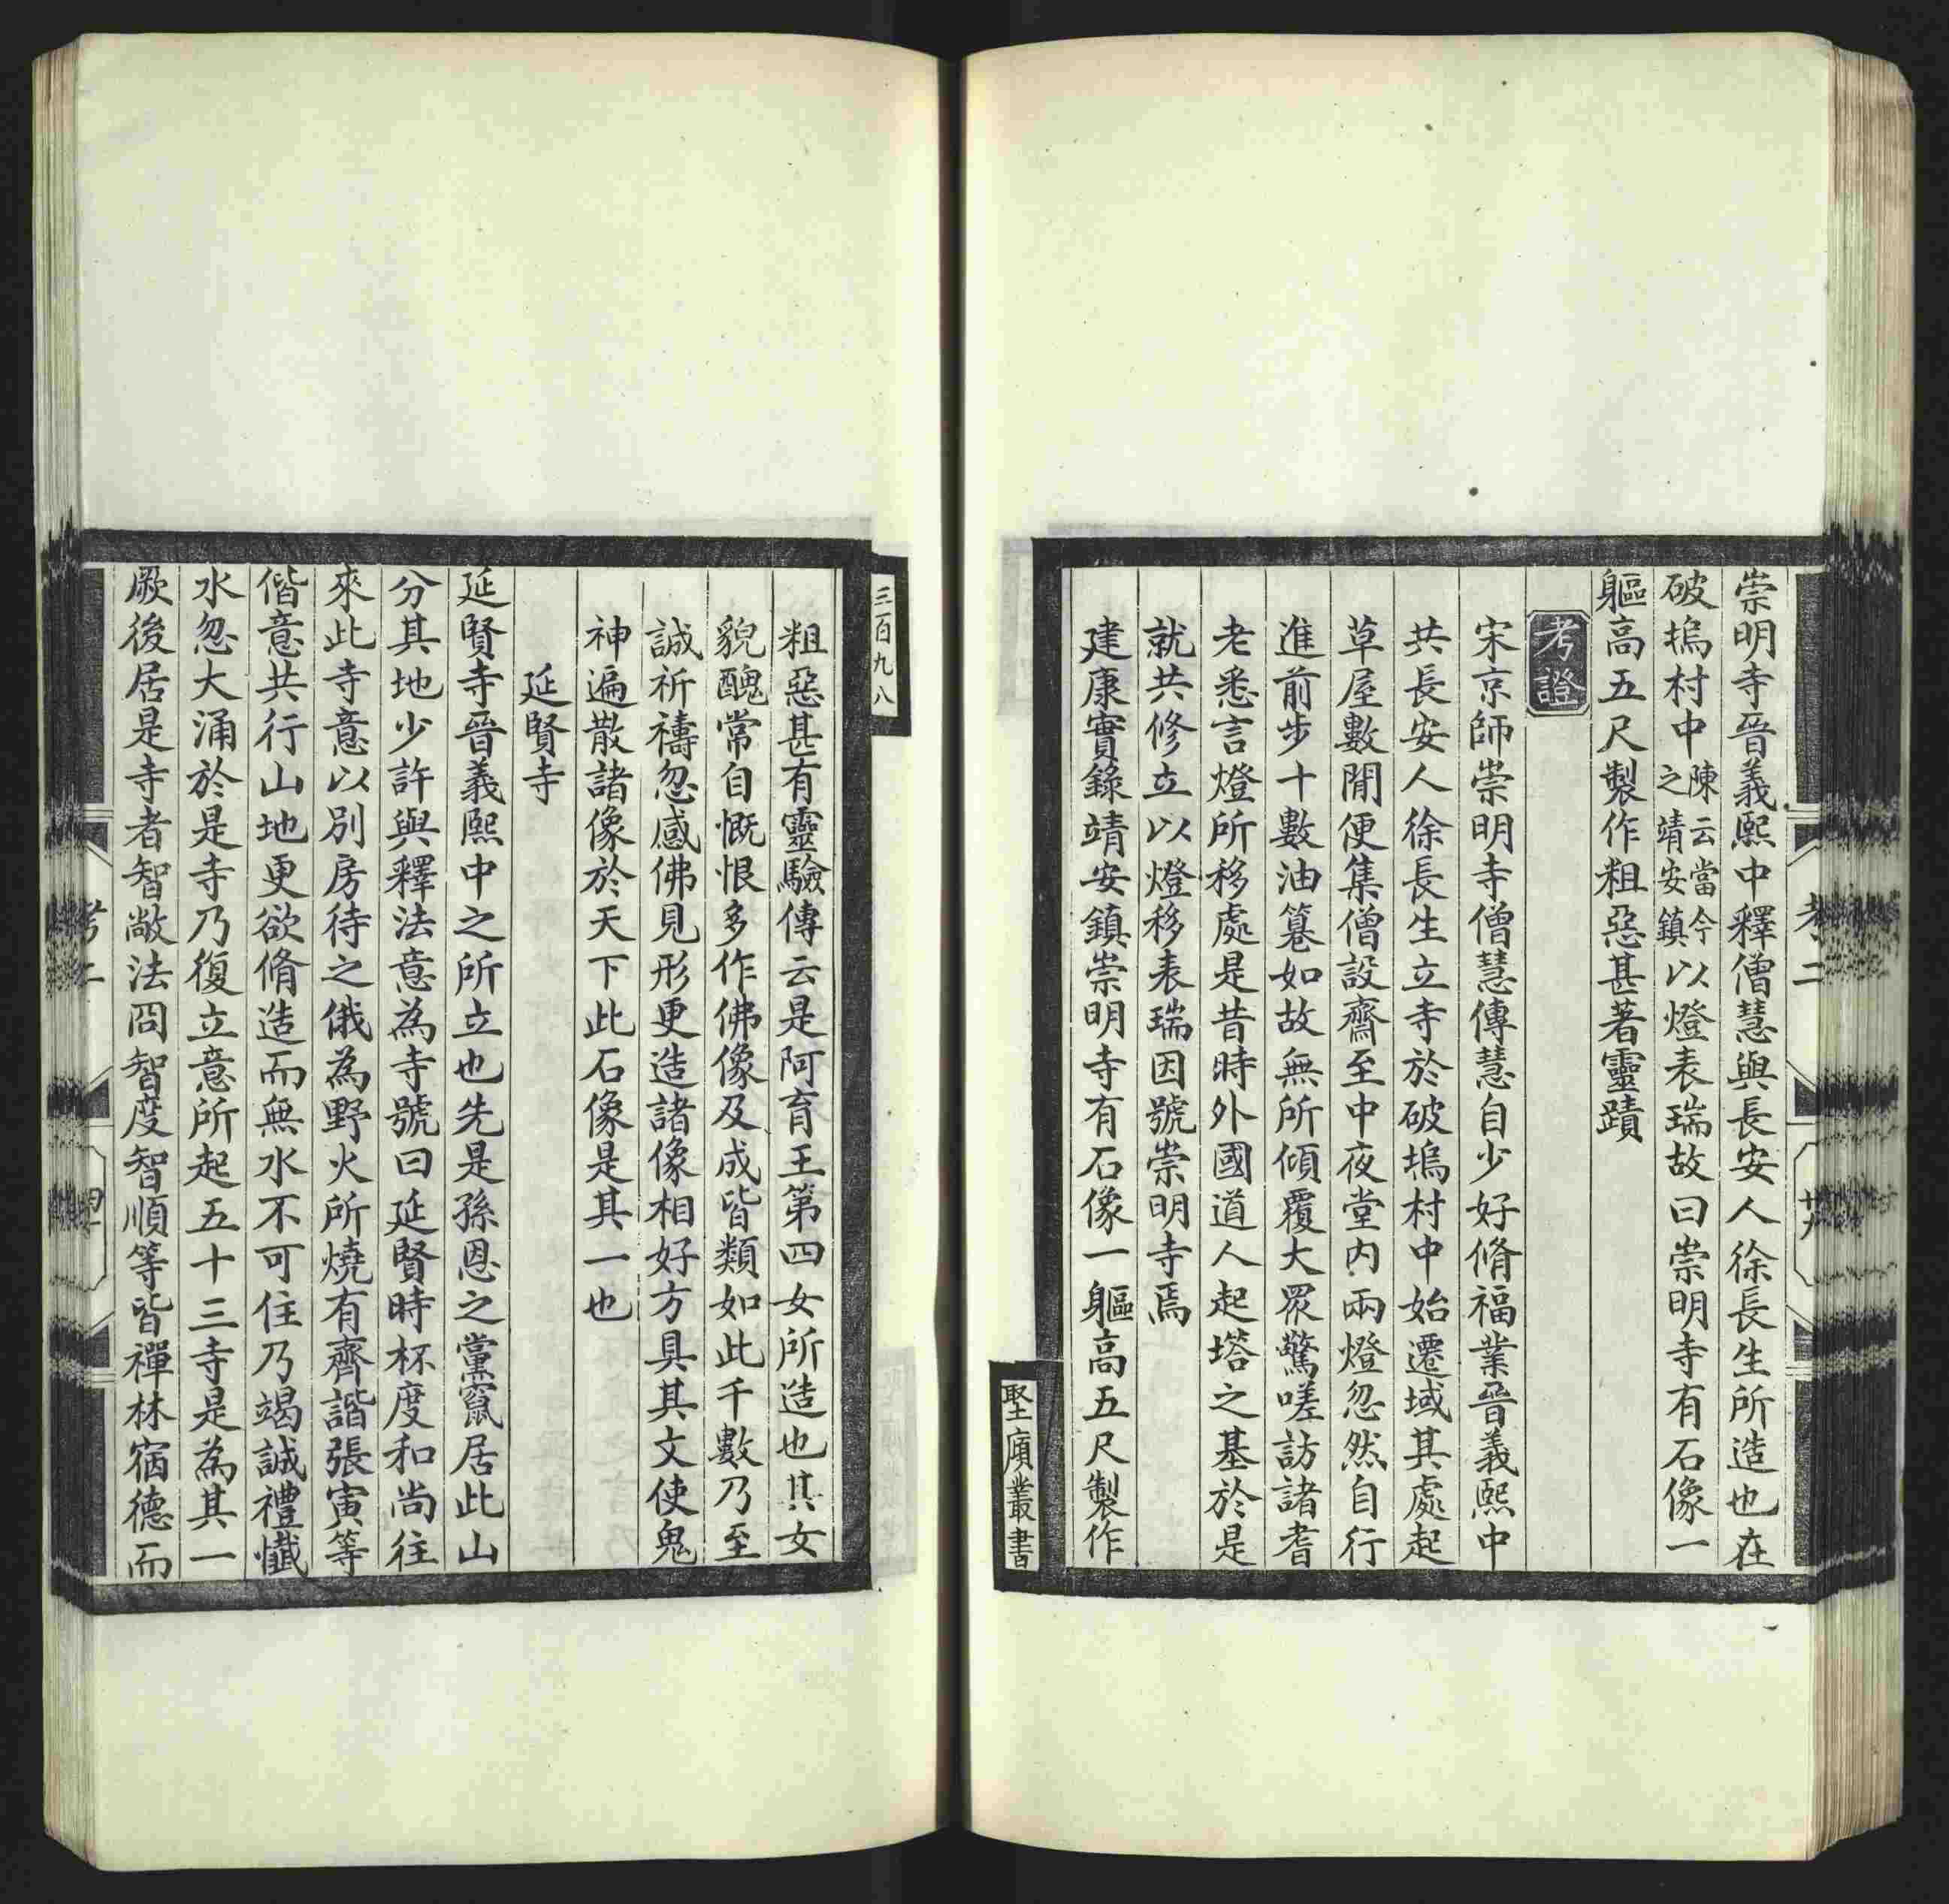 崇明寺晉義熙中釋僧慧與長安人徐長生所造也在
破塢村中陳云當今之靖安鎮以燈表瑞故曰崇明寺有石像一
軀高五尺製作粗惡甚著靈蹟
考證
宋京師崇明寺僧慧傳慧自少好脩福業晉義熙中
共長安人徐長生立寺於破塢村中始遷域其處起
草屋數閒便集僧設齋至中夜堂內兩燈忽然自行
進前步十數油篹如故無所傾覆大眾驚嗟訪諸耆
老悉言燈所移處是昔時外國道人起塔之基於是
就共修立以燈移表瑞因號崇明寺焉
建康實錄靖安鎮崇明寺有石像一軀高五尺製作
堅廎叢書
考二
三百九八
粗惡甚有靈驗傳云是阿育王第四女所造也其女
貌醜常自慨恨多作佛像及成皆類如此千數乃至
誠祈禱忽感佛見形更造諸像相好方具其文使鬼
神遍散諸像於天下此石像是其一也
延賢寺
延賢寺晉義熙中之所立也先是孫恩之黨竄居此山
分其地少許與釋法意為寺號曰延賢時杯度和尚往
來此寺意以別房待之俄為野火所燒有齊諧張寅等
偕意共行山地更欲脩造而無水不可住乃竭誠禮懺
水忽大涌於是寺乃復立意所起五十三寺是為其一
厥後居是寺者智敞法冏智度智順等皆禪林宿德而
考二